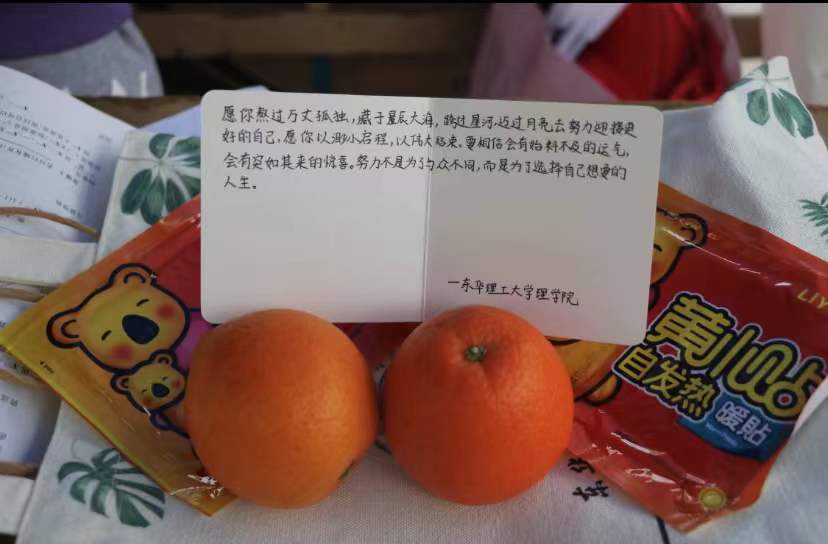 愿你熬过万丈孤独,藏于星辰大海,踏过星河,迈过月亮去努力迎接更
好的自己,愿你以渺小启程,以伟大结束。要相信会有始料不及的运气,
会有突如其来的惊喜。努力不是为了与众不同,而是为了选择自己想要的
人生。
—东华理工大学理学院
LIY
黄小贴
自发热
暖贴
东